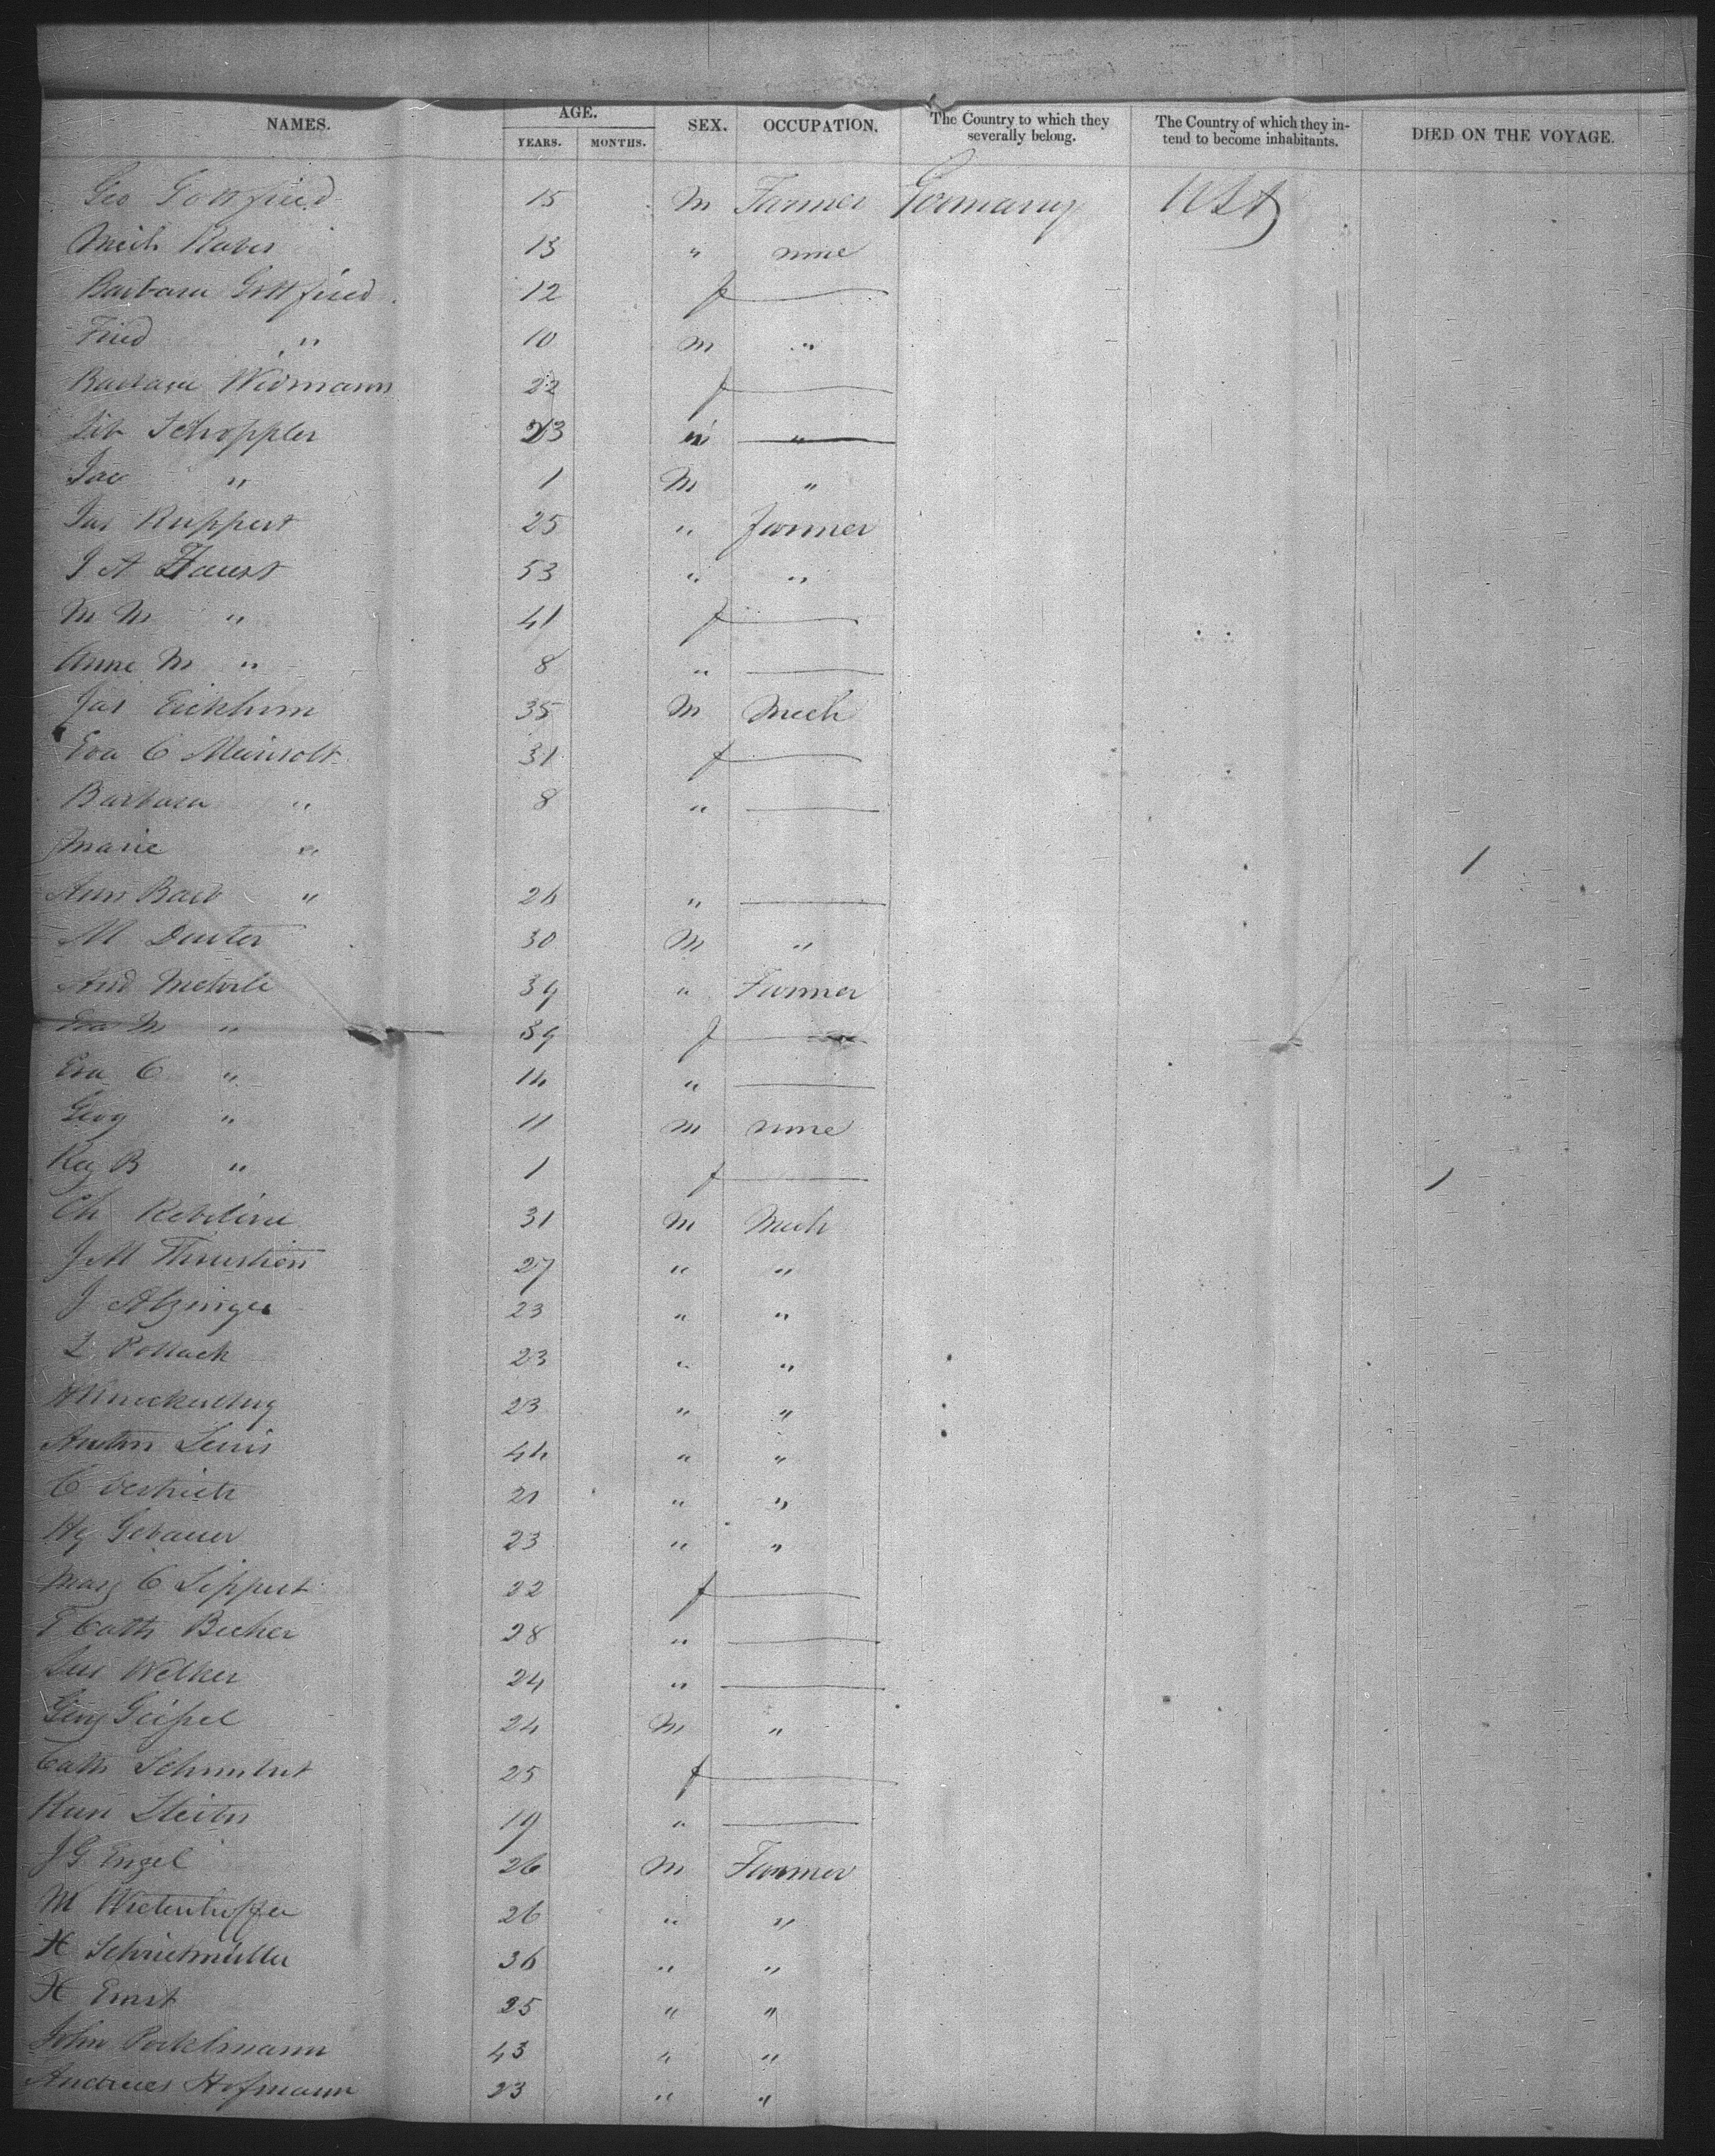 NAMES. AGE. YEARS. MONTHS. SEX. OCCUPATION. The Country to which they severally belong. The Country of which they intend to become inhabitants. DIED ON THE VOYAGE.
Geo Gottfried 15 M Farmer Germany USA
Mich 13 " none
Barbara Gottfried 12 f
Fried " 10 M "
Barbara Widmann 22 f
Schoppler 23 "
Jac " 1 M "
Jas Ruppert 25 " farmer
J A Faust 53 " "
M M " 41 f
Anne M " 8 "
Jas Eickhorn 35 M Mech
Eva C Meinsolt 31 f
Barbara " 8 "
Marie " 1
Ann Barb " 26 "
M Dauter 30 M "
And 39 " Farmer
Eva M " 39 f
Eva C " 14 "
Geog " 11 M none
B " 1 f 1
Ch 31 M Mech
J M 27 " "
J Alzinger 23 " "
L Pollack 23 " "
23 " "
Anton 44 " "
C Oestrich 21 " "
Hy Gebauer 23 " "
Marg C Lippert 22 f
Cath Becker 28 "
Welker 24 "
Geipel 24 M "
Cath 25 f
Kun 19 "
J G Engel 26 M Farmer
M 26 " "
H 36 " "
H Ernst 25 " "
John Pockelmann 43 " "
Andreas Hofmann 23 " "